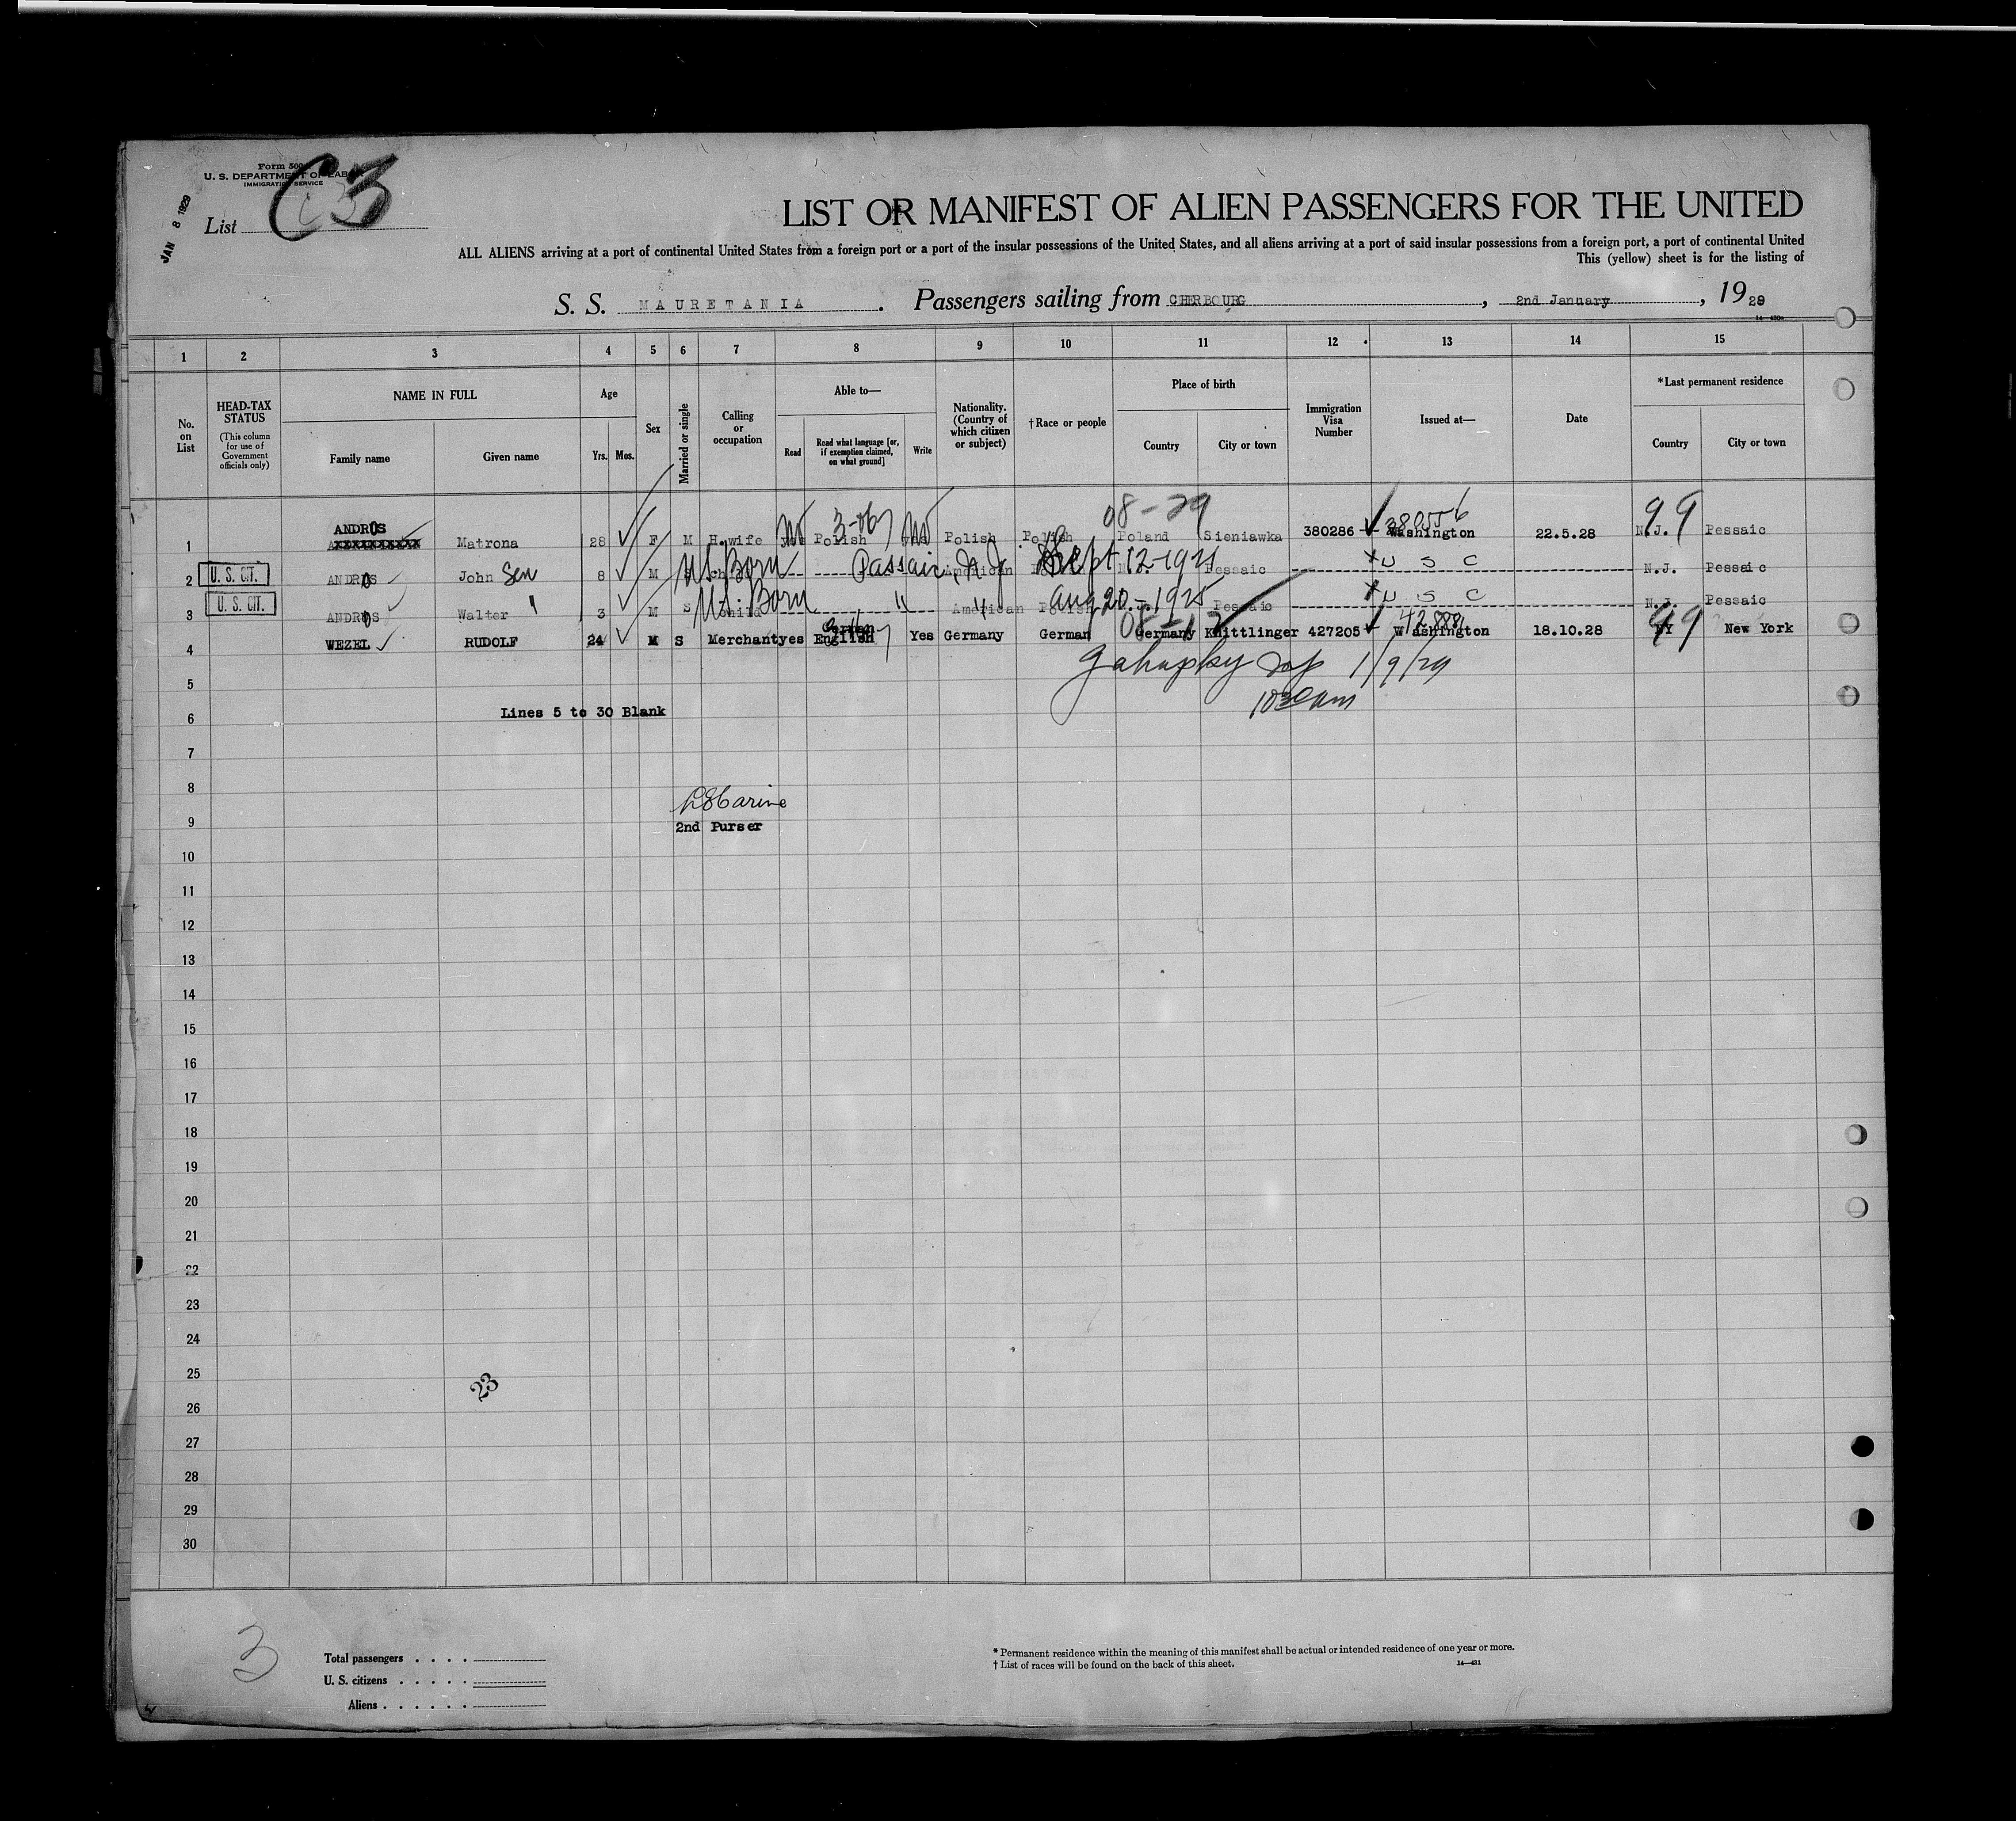 Form 500
U. S. DEPARTMENT OF LABOR
IMMIGRATION SERVICE
JAN 8 1929
List C 3
LIST OR MANIFEST OF ALIEN PASSENGERS FOR THE UNITED
ALL ALIENS arriving at a port of continental United States from a foreign port or a port of the insular possessions of the United States, and all aliens arriving at a port of said insular possessions from a foreign port, a port of continental United
This (yellow) sheet is for the listing of
S. S. MAURETANIA. Passengers sailing from CHERBOURG, 2nd January, 1929
1 2 3 4 5 6 7 8 9 10 11 12 13 14 15
No. on List
HEAD-TAX STATUS
(This column for use of Government officials only)
NAME IN FULL
Family name Given name
Age
Yrs. Mos.
Sex
Married or single
Calling or occupation
Able to—
Read
Read what language [or, if exemption claimed, on what ground]
Write
Nationality. (Country of which citizen or subject)
†Race or people
Place of birth
Country City or town
Immigration Visa Number
Issued at—
Date
*Last permanent residence
Country City or town
08-29
1 ANDROS Matrona 28 F M H.wife yes Polish yes Polish Polish Poland Sieniawka 380286 Washington 22.5.28 N.J. Pessaic
99
2 U. S. CIT. ANDROS John Sen 8 M US Born Passaic, N J American Sept 12-1921 Pessaic U S C N.J. Pessaic
3 U. S. CIT. ANDROS Walter " 3 M S Child US. Born " American Polish Aug 20-1925 Pessaic U S C N.J. Pessaic
4 WEZEL RUDOLF 24 M S Merchant yes German English Yes Germany German Germany Knittlinger 427205 Washington 18.10.28 NY New York
99
5 1/9/29
6 Lines 5 to 30 Blank 1030 am
7
8
9 2nd Purser
10
11
12
13
14
15
16
17
18
19
20
21
22
23
24
25
23
26
27
28
29
30
3
Total passengers
U. S. citizens
Aliens
* Permanent residence within the meaning of this manifest shall be actual or intended residence of one year or more.
† List of races will be found on the back of this sheet.
14—431